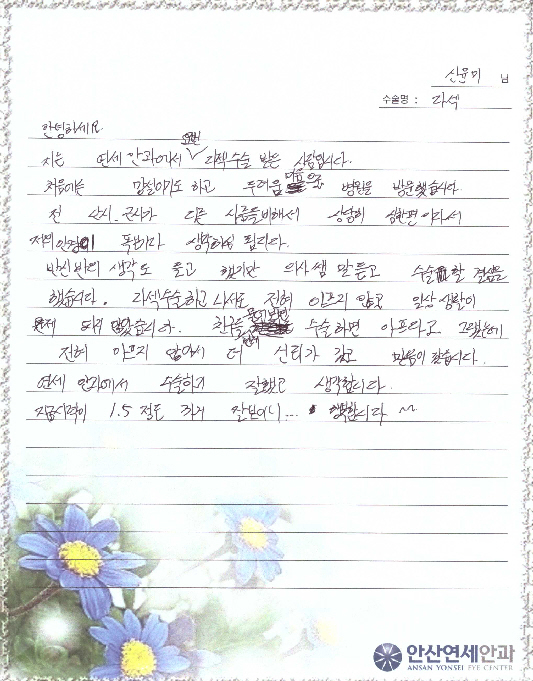 신윤미 님
수술명 : 라섹
안녕하세요.
저는 연세 안과에서 라섹수술 받은 사람입니다.
처음에는 하고 두려움 마음으로 병원을 방문했습니다
전 난시. 근시가 다른 사람들비해서 상당히 심한편 이라서
저의 안경이 생각하시면 됩니다.
반신반의 생각도 들고 했지만 의사쌤 말듣고 수술할 결심을
했습니다. 라섹수술하고 나서도 전혀 아프지 않고 일상생활이
수술하면 아프다고 그랬는데
전혀 아프지 않아서 더 신뢰가 갔고 믿음이 갔습니다.
연세 안과에서 수술하기 잘했고 생각합니다.
지금시력이 1.5 정도 잘보이니...
안산연세안과
ANSAN YONSEI EYE CENTER